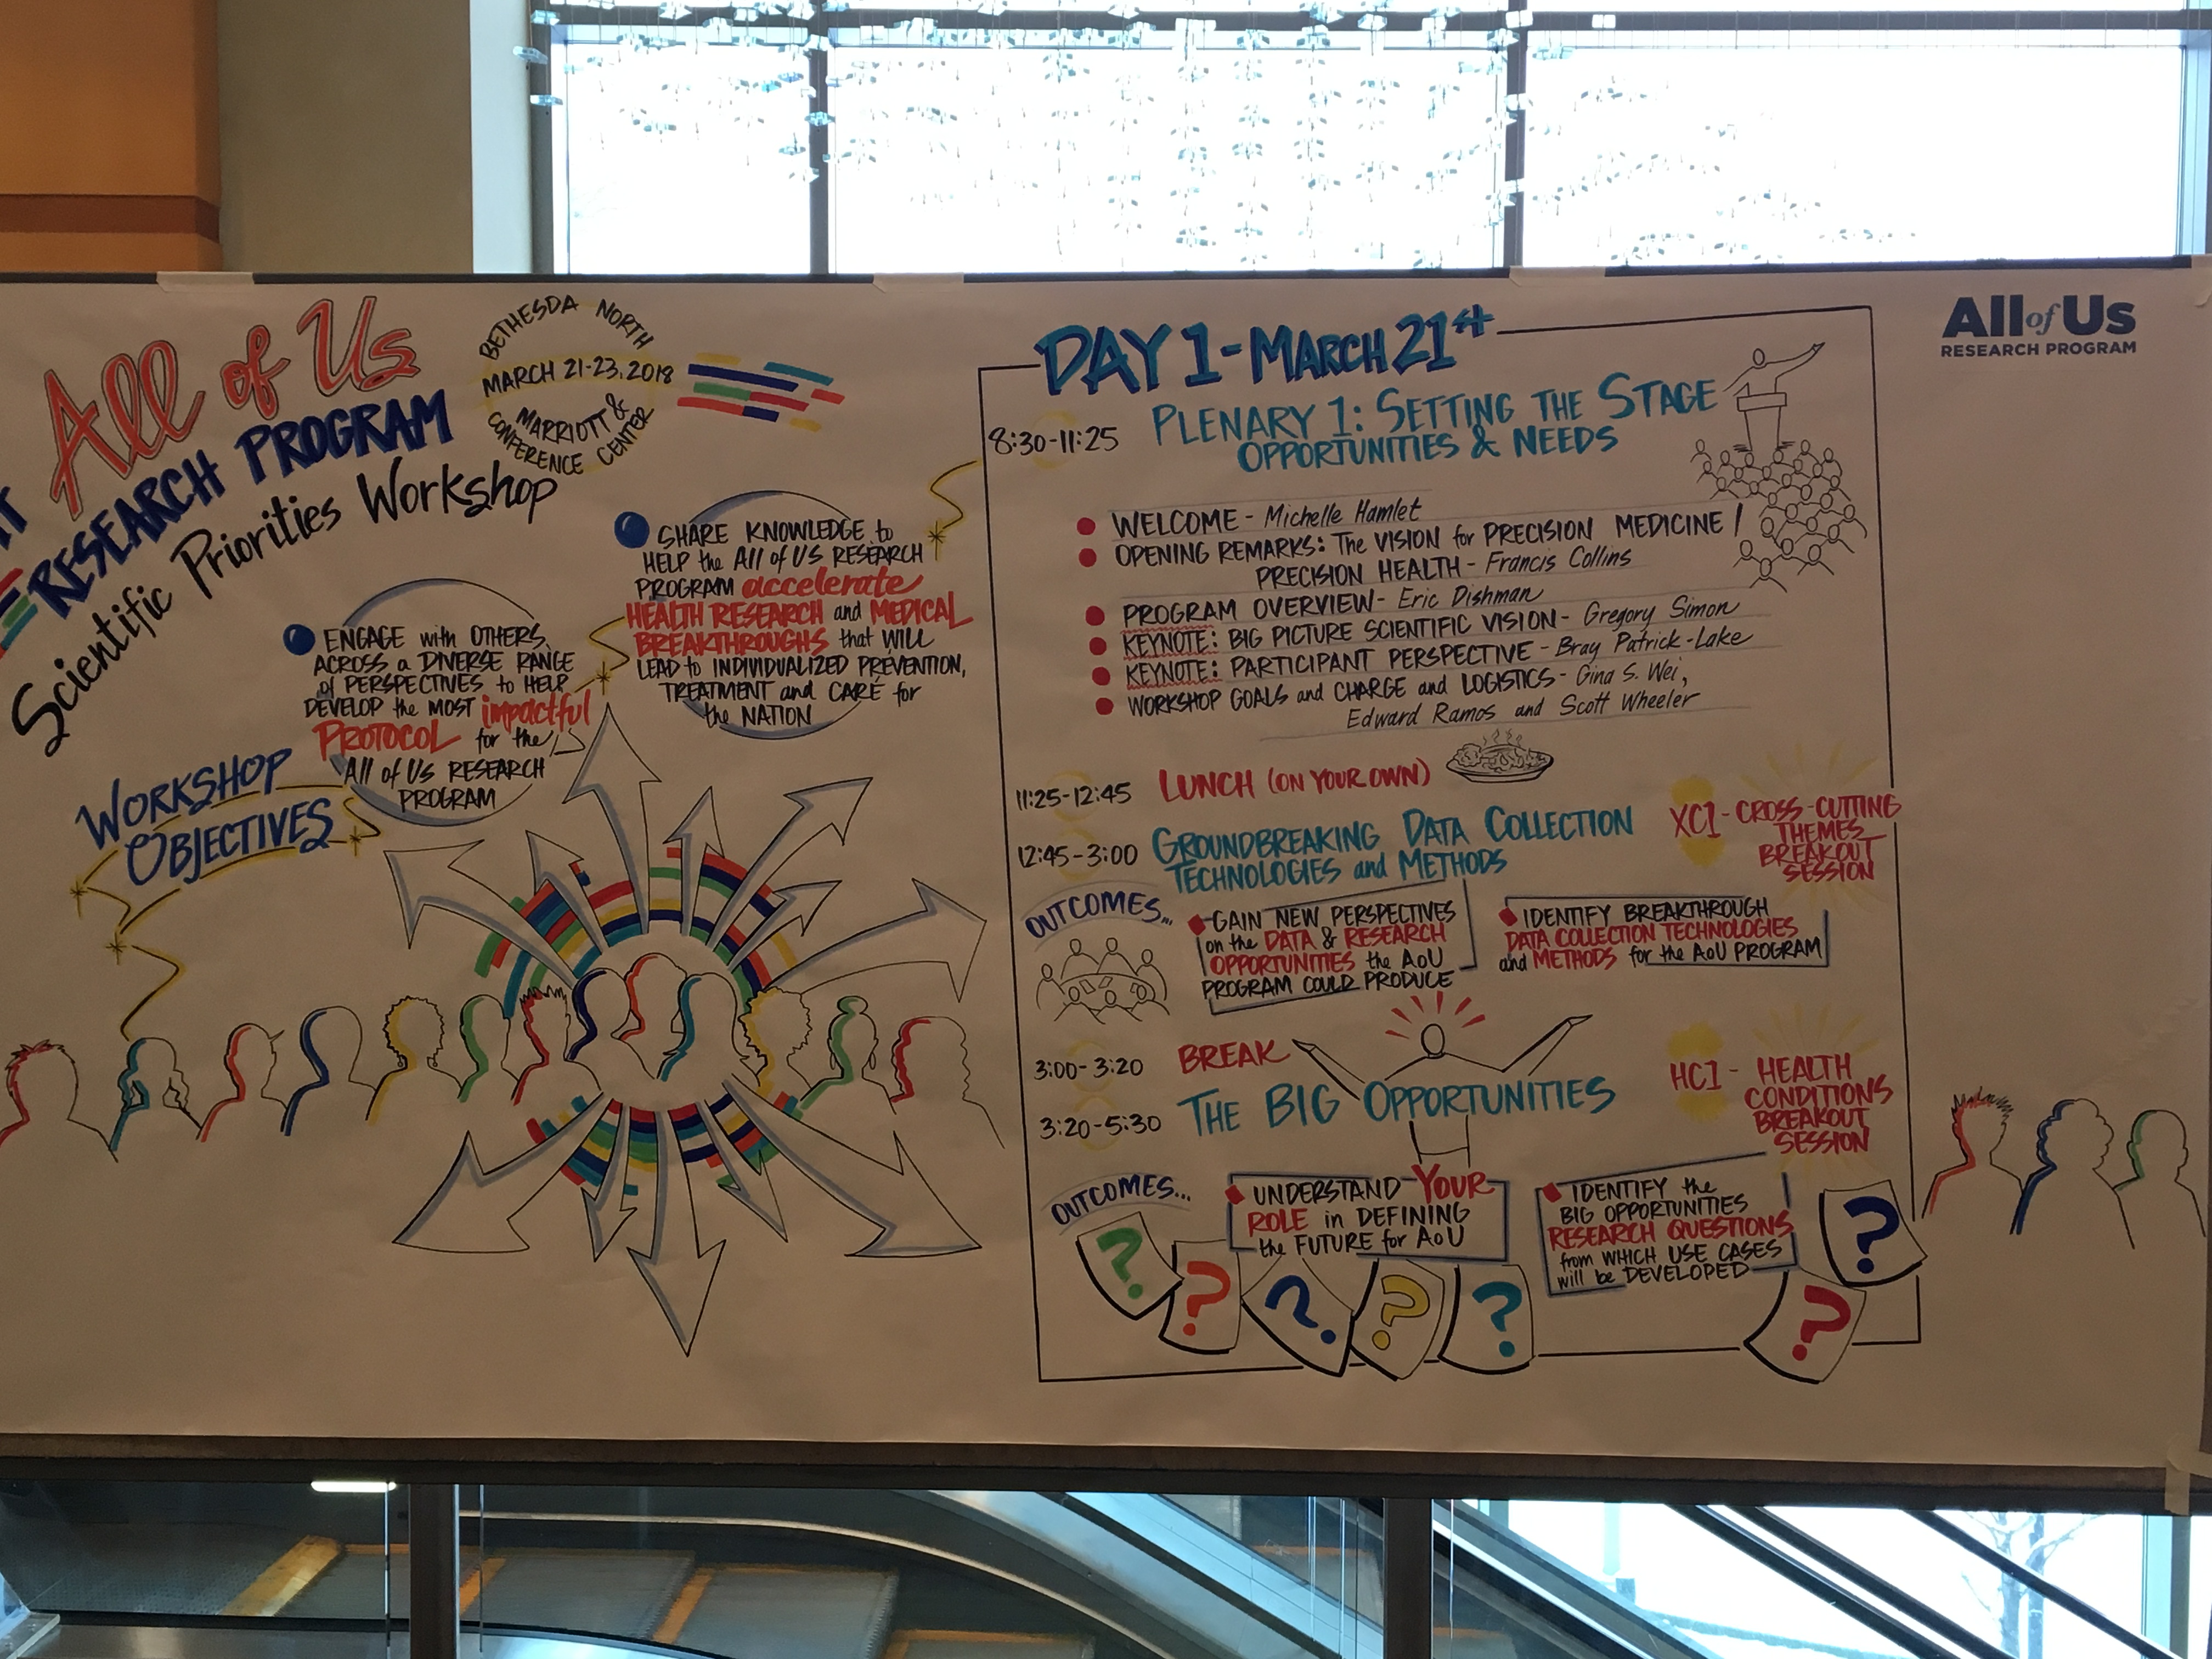 All of Us
RESEARCH PROGRAM
Scientific Priorities Workshop
BETHESDA NORTH
MARCH 21-23, 2018
MARRIOTT &
CONFERENCE CENTER
WORKSHOP
OBJECTIVES
ENGAGE with OTHERS
ACROSS a DIVERSE RANGE
of PERSPECTIVES to HELP
DEVELOP the MOST impactful
PROTOCOL for the
All of Us RESEARCH
PROGRAM
SHARE KNOWLEDGE to
HELP the All of US RESEARCH
PROGRAM accelerate
HEALTH RESEARCH and MEDICAL
BREAKTHROUGHS that WILL
LEAD to INDIVIDUALIZED PREVENTION,
TREATMENT and CARE for
the NATION
DAY 1 - MARCH 21st
8:30-11:25 PLENARY 1: SETTING THE STAGE
OPPORTUNITIES & NEEDS
WELCOME - Michelle Hamlet
OPENING REMARKS: The VISION for PRECISION MEDICINE /
PRECISION HEALTH - Francis Collins
PROGRAM OVERVIEW - Eric Dishman
KEYNOTE: BIG PICTURE SCIENTIFIC VISION - Gregory Simon
KEYNOTE: PARTICIPANT PERSPECTIVE - Bray Patrick-Lake
WORKSHOP GOALS and CHARGE and LOGISTICS - Gina S. Wei,
Edward Ramos and Scott Wheeler
11:25-12:45 LUNCH (ON YOUR OWN)
12:45-3:00 GROUNDBREAKING DATA COLLECTION
TECHNOLOGIES and METHODS
XC1 - CROSS-CUTTING
THEMES
BREAKOUT
SESSION
OUTCOMES...
GAIN NEW PERSPECTIVES
on the DATA & RESEARCH
OPPORTUNITIES the AoU
PROGRAM COULD PRODUCE
IDENTIFY BREAKTHROUGH
DATA COLLECTION TECHNOLOGIES
and METHODS for the AoU PROGRAM
3:00-3:20 BREAK
3:20-5:30 THE BIG OPPORTUNITIES
HC1 - HEALTH
CONDITIONS
BREAKOUT
SESSION
OUTCOMES...
UNDERSTAND YOUR
ROLE in DEFINING
the FUTURE for AoU
IDENTIFY the
BIG OPPORTUNITIES
RESEARCH QUESTIONS
from WHICH USE CASES
will be DEVELOPED
? ? ? ? ? ? ?
All of Us
RESEARCH PROGRAM